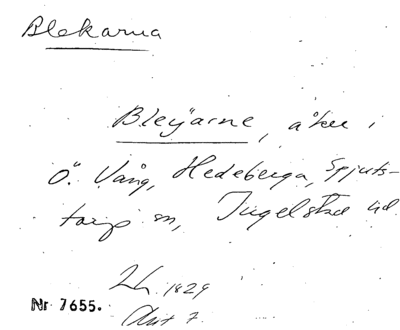 Blekarna
Bleÿarne, åker i
Ö. Vång, Hedeberga, Spjuts-
torp sn, Ingelstad hd.
Lh. 1829
Akt 7.
Nr 7655.